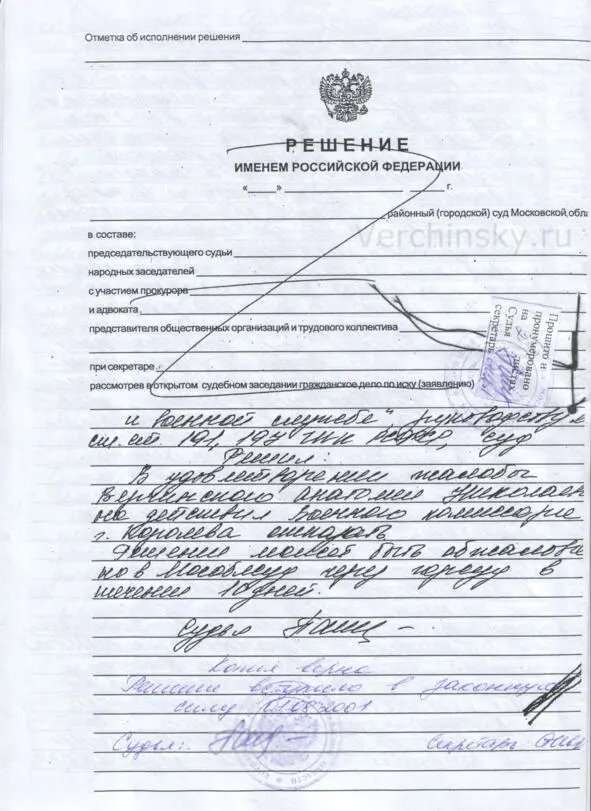 Отметка об исполнении решения
РЕШЕНИЕ
ИМЕНЕМ РОССИЙСКОЙ ФЕДЕРАЦИИ
«____» ____________ _____ г.
районный (городской) суд Московской обла
verchinsky.ru
в составе:
председательствующего судьи
народных заседателей
с участием прокурора
и адвоката
представителя общественных организаций и трудового коллектива
при секретаре
рассмотрев в открытом судебном заседании гражданское дело по иску (заявлению)
Прошито и
пронумеровано
на листах
Судья
секретарь
и военной службе"
ст. ст. 191, 197 ГПК РСФСР, суд
Решил:
В удовлетворении жалобы
Верчинского Николаев
на действия Военного
г. Королева отказать
Решение может быть обжалова
но в Мособлсуд через горсуд в
течении 10 дней.
Судья
Копия верна
Решение вступило в законную
силу 2001
Судья: Секретарь